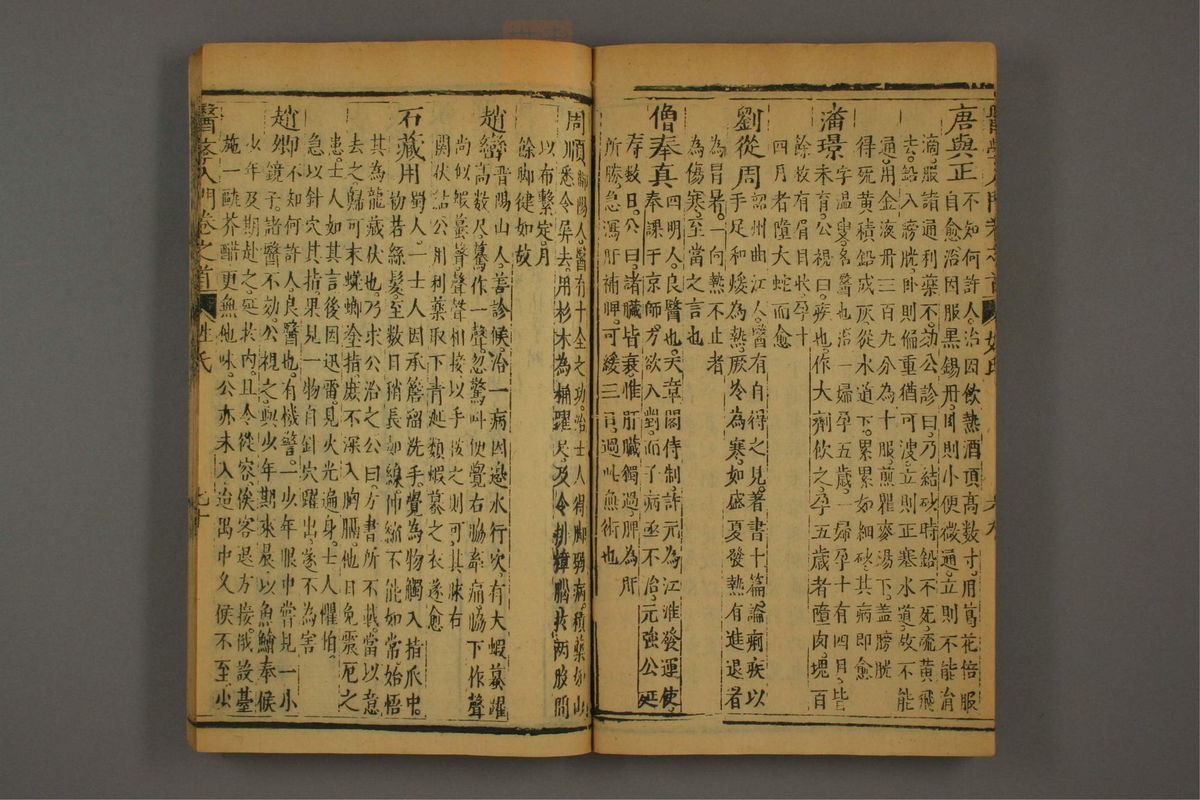 唐與正不知何許人治因飲熱酒頂高數寸用葛花倍服
自愈治因服黑錫丹臥則小便微通立則不能涓
滴服諸通利藥不効公診曰乃結砂時鉛不死硫黃飛
去鉛入膀胱臥則偏重猶可溲立則正塞水道故不能
通用金液丹三百九分為十服煎瞿麥湯下蓋膀胱
得硫黃積鉛成灰從水道下累累如細砂其病即愈
潘璟字溫叟名醫也治一婦孕五歲一婦孕十有四月皆
未育公視曰疾也作大劑飲之孕五歲者墮肉塊百
餘枚有眉目狀孕十
四月者墮大蛇而愈
劉從周韶州曲江人醫有自得之見著書十篇論痢疾以
手足和煖為熱厥冷為寒如盛夏發熱有進退者
為冒暑一向熱不止者
為傷寒至當之言也
僧奉真四明人良醫也天章閣侍制許元為江淮發運使
奉課于京師方欲入對而子病亟不治元強公延
存數日公曰諸臟皆衰惟肝臟獨過脾為肝
所勝急瀉肝補脾可緩三日過此無術也
周順鄱陽人醫有十全之功治士人得腳弱病積藥如山
悉令屏去用杉木為桶濯足及令排樟腦於兩股間
以布繫定月
餘腳健如故
趙巒晉陽山人善診候治一病因邊水行次有大蝦蟇躍
高數尺驀作一聲忽驚叫便覺右脇牽痛脇下作聲
尚似蝦蟇聲聲聲相接以手按之則可其脉右
關伏結公用利藥取下青涎類蝦蟇之衣遂愈
石藏用蜀人一士人因承簷溜洗手覺為物觸入指爪中
初若絲髮至數日稍長如線伸縮不能如常始悟
其為龍藏伏也乃求公治之公曰方書所不載當以意
去之歸可末蜣螂塗指庶不深入胸膈他日免震厄之
患士人如其言後因迅雷見火光遍身士人懼怕
急以針穴其指果見一物自針穴躍出遂不為害
趙卯不知何許人良醫也有機警一少年眼中嘗見一小
鏡子諸醫不効公視之與少年期來晨以魚鱠奉候
少年及期赴之延於內且令從容俟客退方接俄設臺
施一甌芥醋更無他味公亦未入迨禺中久候不至少
醫學入門卷之首 姓氏